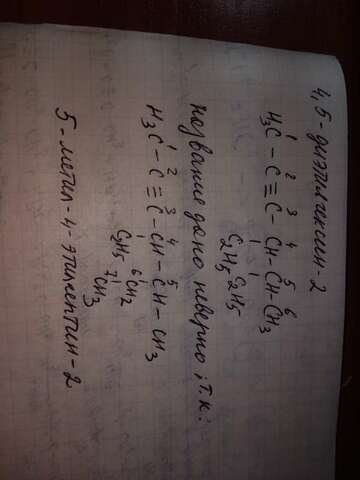 4,5-диэтилгексин-2
1 2 3 4 5 6
H₃C - C ≡ C - CH - CH - CH₃
C₂H₅ C₂H₅
название дано неверно, т.к.:
1 2 3 4 5
H₃C - C ≡ C - CH - CH - CH₃
C₂H₅ 6 CH₂
7 CH₃
5-метил-4-этилгептин-2